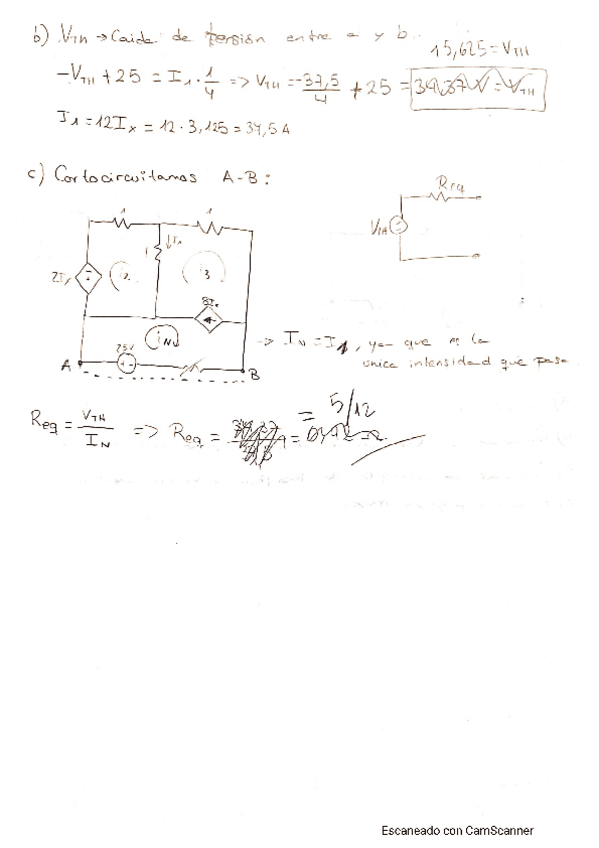 b) VTH → Caida de tensión entre a y b.
15,625 = VTH
-VTH + 25 = I1 · 1/4 => VTH = -37,5/4 + 25 = 34,37 V = VTH
I1 = 12Ix = 12 · 3,125 = 37,5 A
c) Cortocircuitamos A-B:
Req
VTH
1 1
1 ↓Ix
2Ix i2 i3
8Ix
iN
25V
A B
→ IN = I1, ya que es la
única intensidad que pasa
= 5/12
Req = VTH/IN => Req =
Escaneado con CamScanner